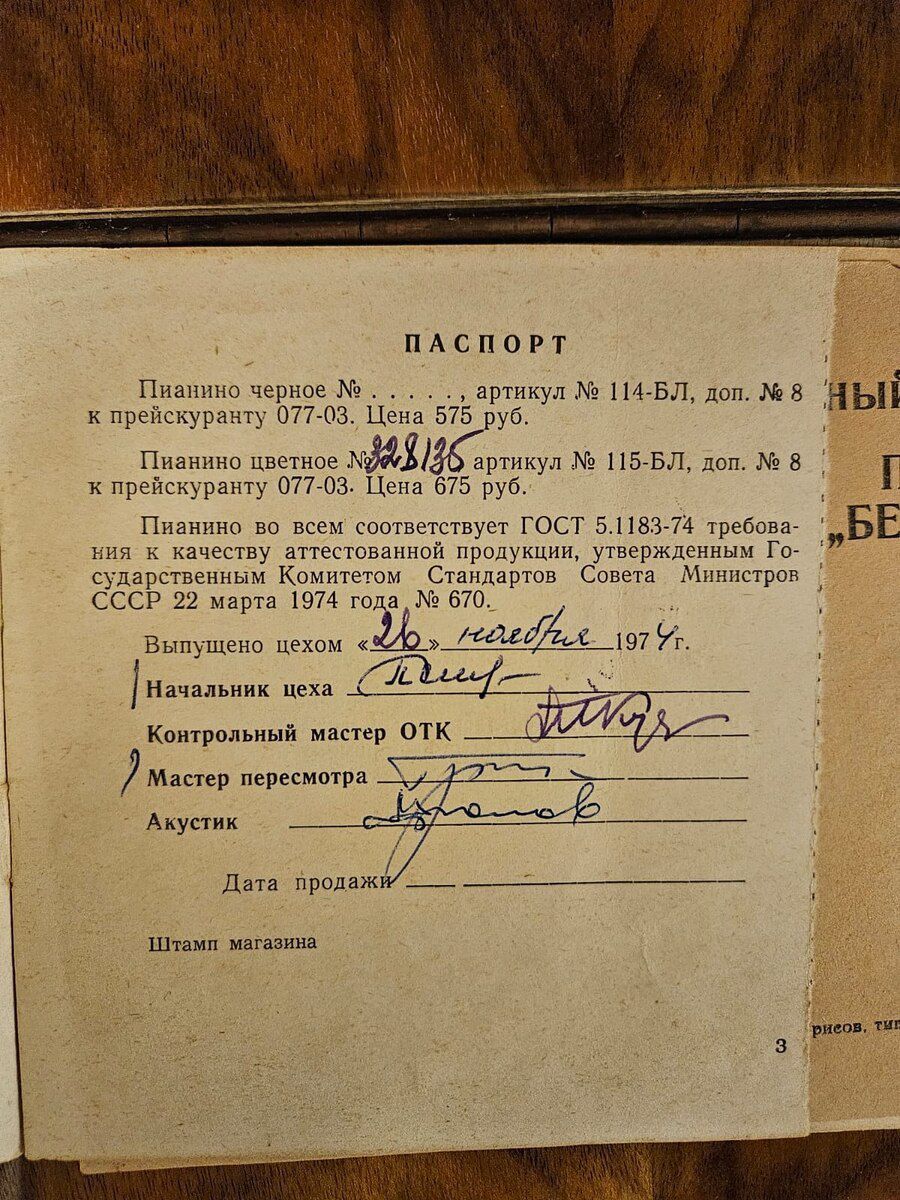 ПАСПОРТ
Пианино черное № . . . . . , артикул № 114-БЛ, доп. № 8
к прейскуранту 077-03. Цена 575 руб.
Пианино цветное № 328135 артикул № 115-БЛ, доп. № 8
к прейскуранту 077-03. Цена 675 руб.
Пианино во всем соответствует ГОСТ 5.1183-74 требова-
ния к качеству аттестованной продукции, утвержденным Го-
сударственным Комитетом Стандартов Совета Министров
СССР 22 марта 1974 года № 670.
Выпущено цехом «26» ноября 1974 г.
Начальник цеха
Контрольный мастер ОТК
Мастер пересмотра
Акустик
Дата продажи
Штамп магазина
3
ный
П
„БЕ
рисов, тип